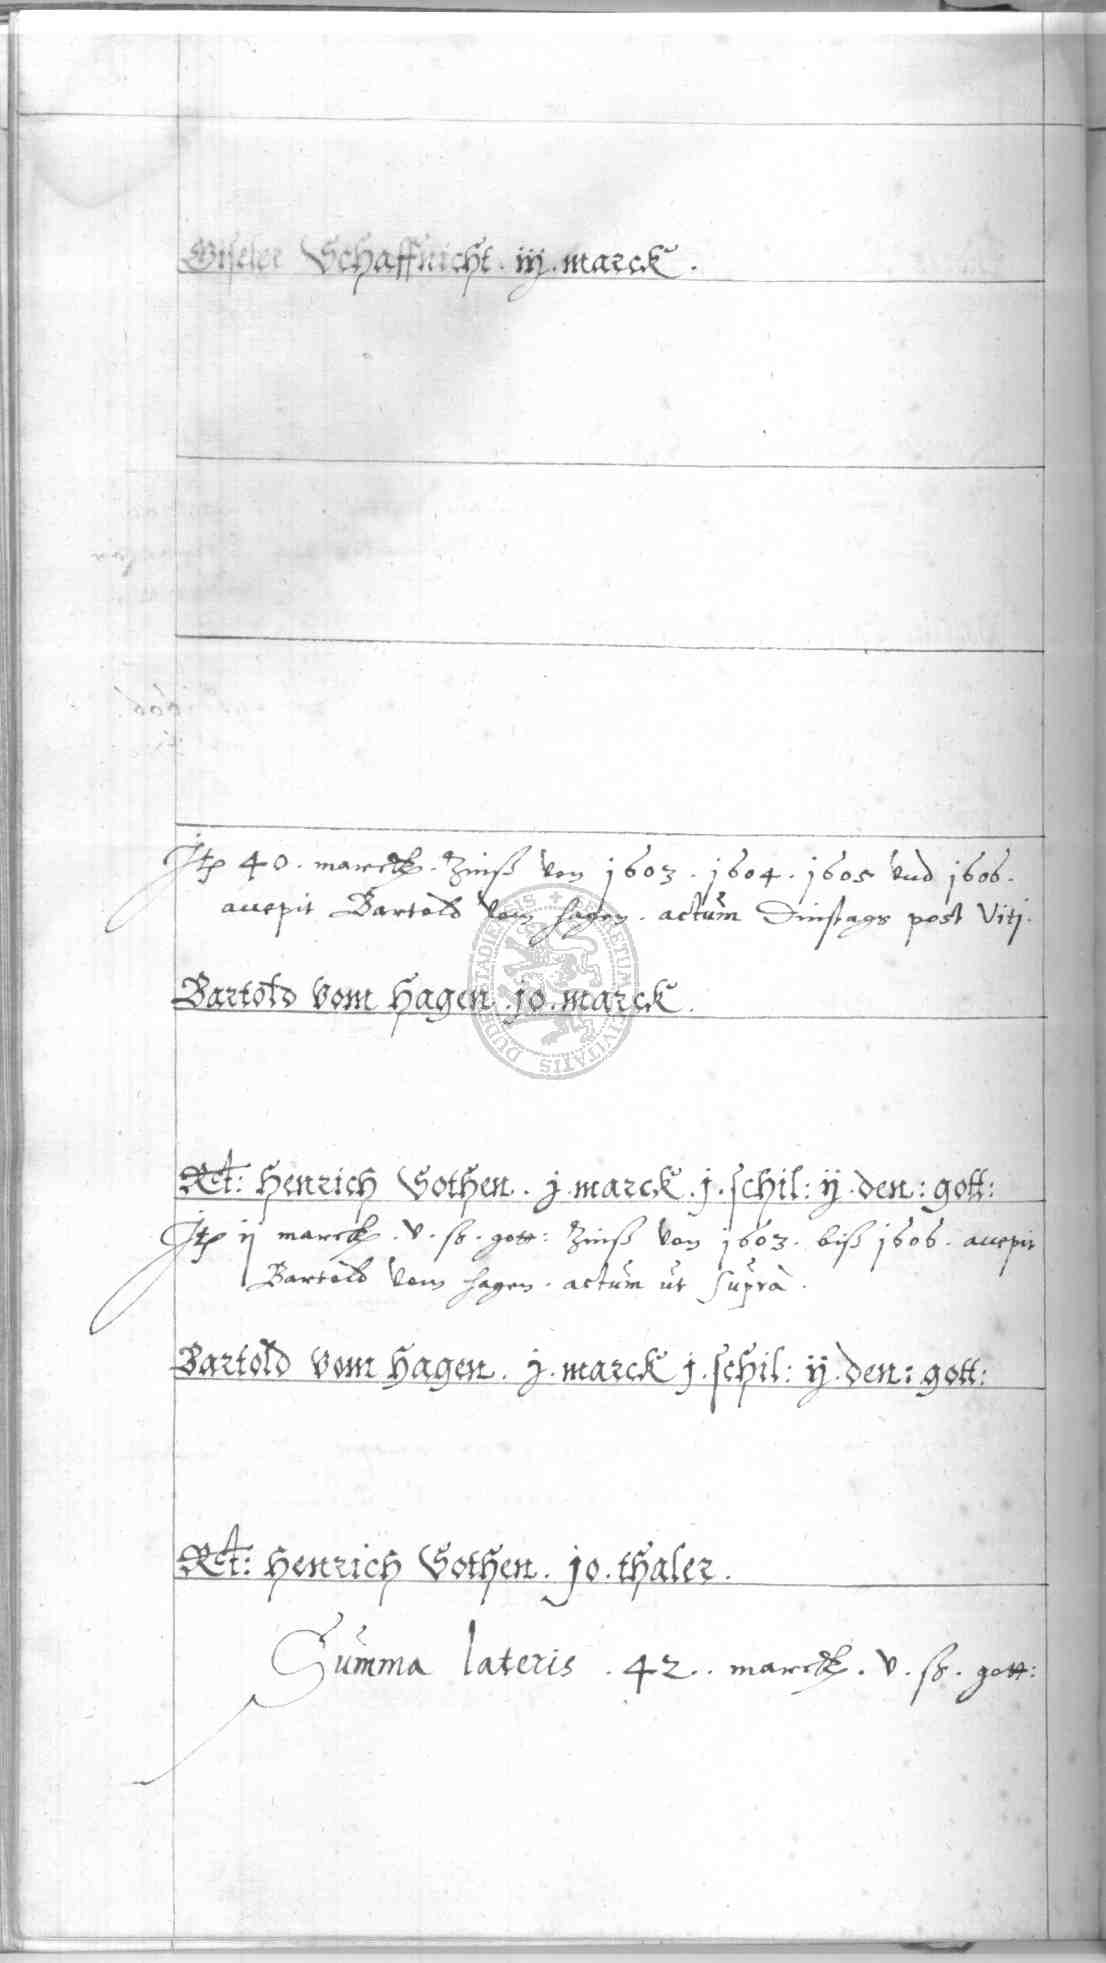 Giseler Schaffnicht . iij . marck .
Jtem 40 . marck . Zinß von 1603 . 1604 . 1605 vnd 1606 .
accepit Bartold vom Hagen . actum Dinstags post Viti .
Bartold vom Hagen . jo . marck .
Rct: Henrich Gothen . j . marck . j . schil : ij . den : gott :
Jtem ij marck . v . ß . gott : Zinß von 1603 . biß 1606 . accepit
Bartold vom Hagen . actum ut supra .
Bartold vom Hagen . j . marck j . schil : ij . den : gott :
Rct: Henrich Gothen . jo . thaler .
Summa lateris . 42 . marck . v . ß . gott :
SECRETUM CIVITATIS DUDERSTADIENSIS